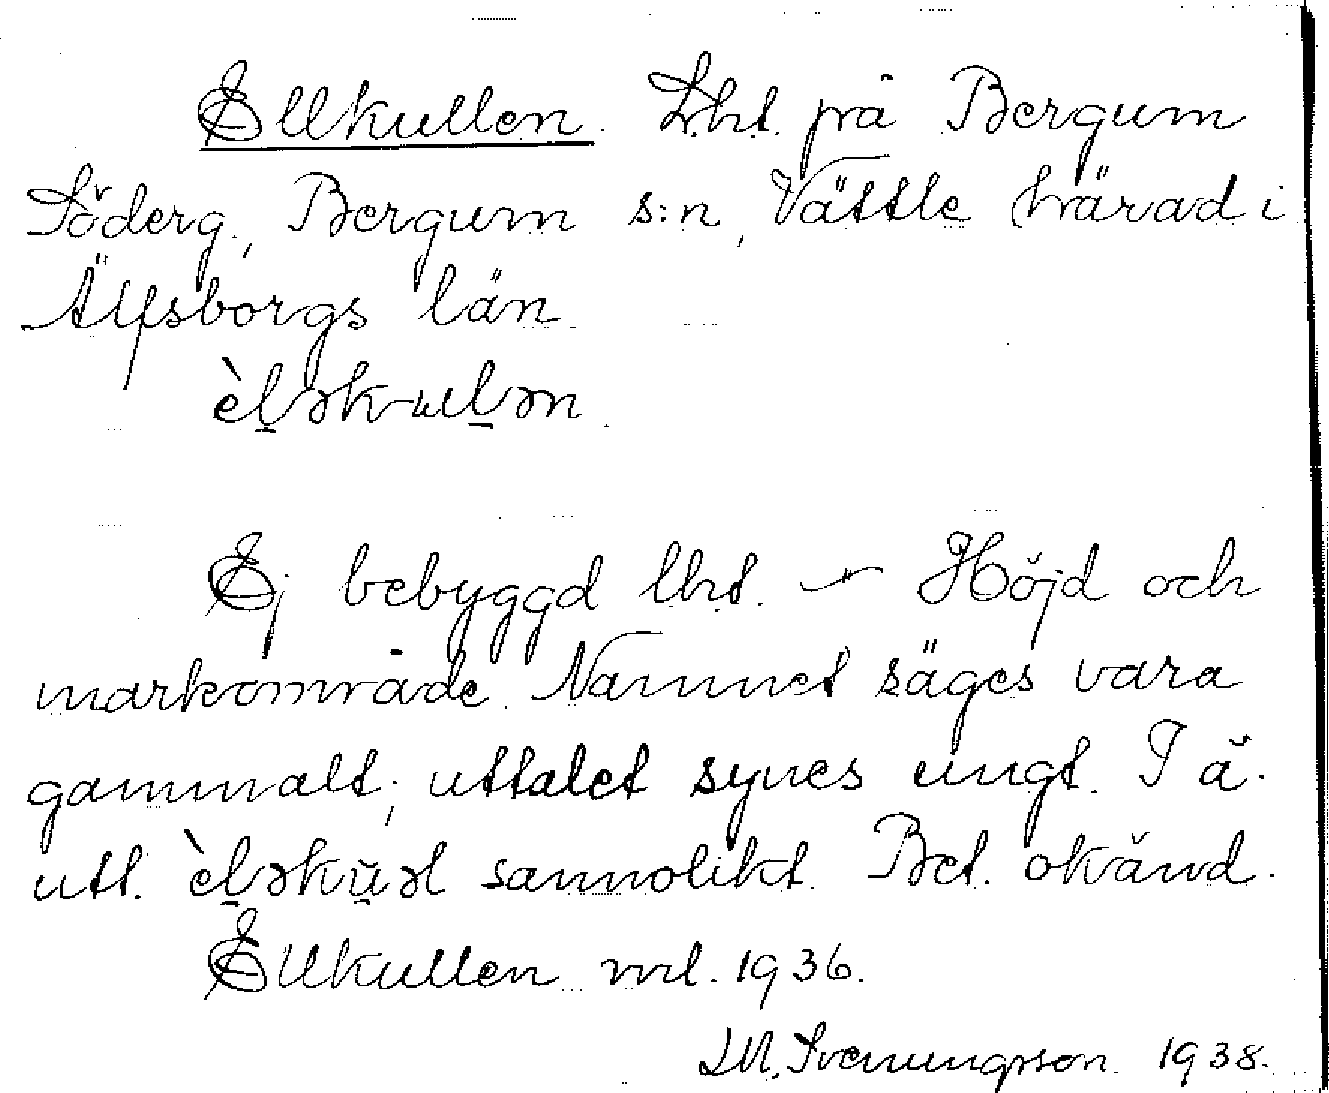 Ellkullen. Lht. på Bergum
Söderg., Bergum s:n, Vättle härad i
Älfsborgs län.
èl̠ək-ɯl̠ən.
Ej bebyggd lht. – Höjd och
markområde. Namnet säges vara
gammalt; uttalet synes ungt. I ä.
utt. sannolikt. Bet. okänd.
Ellkullen ml. 1936.
Svenungsson 1938.